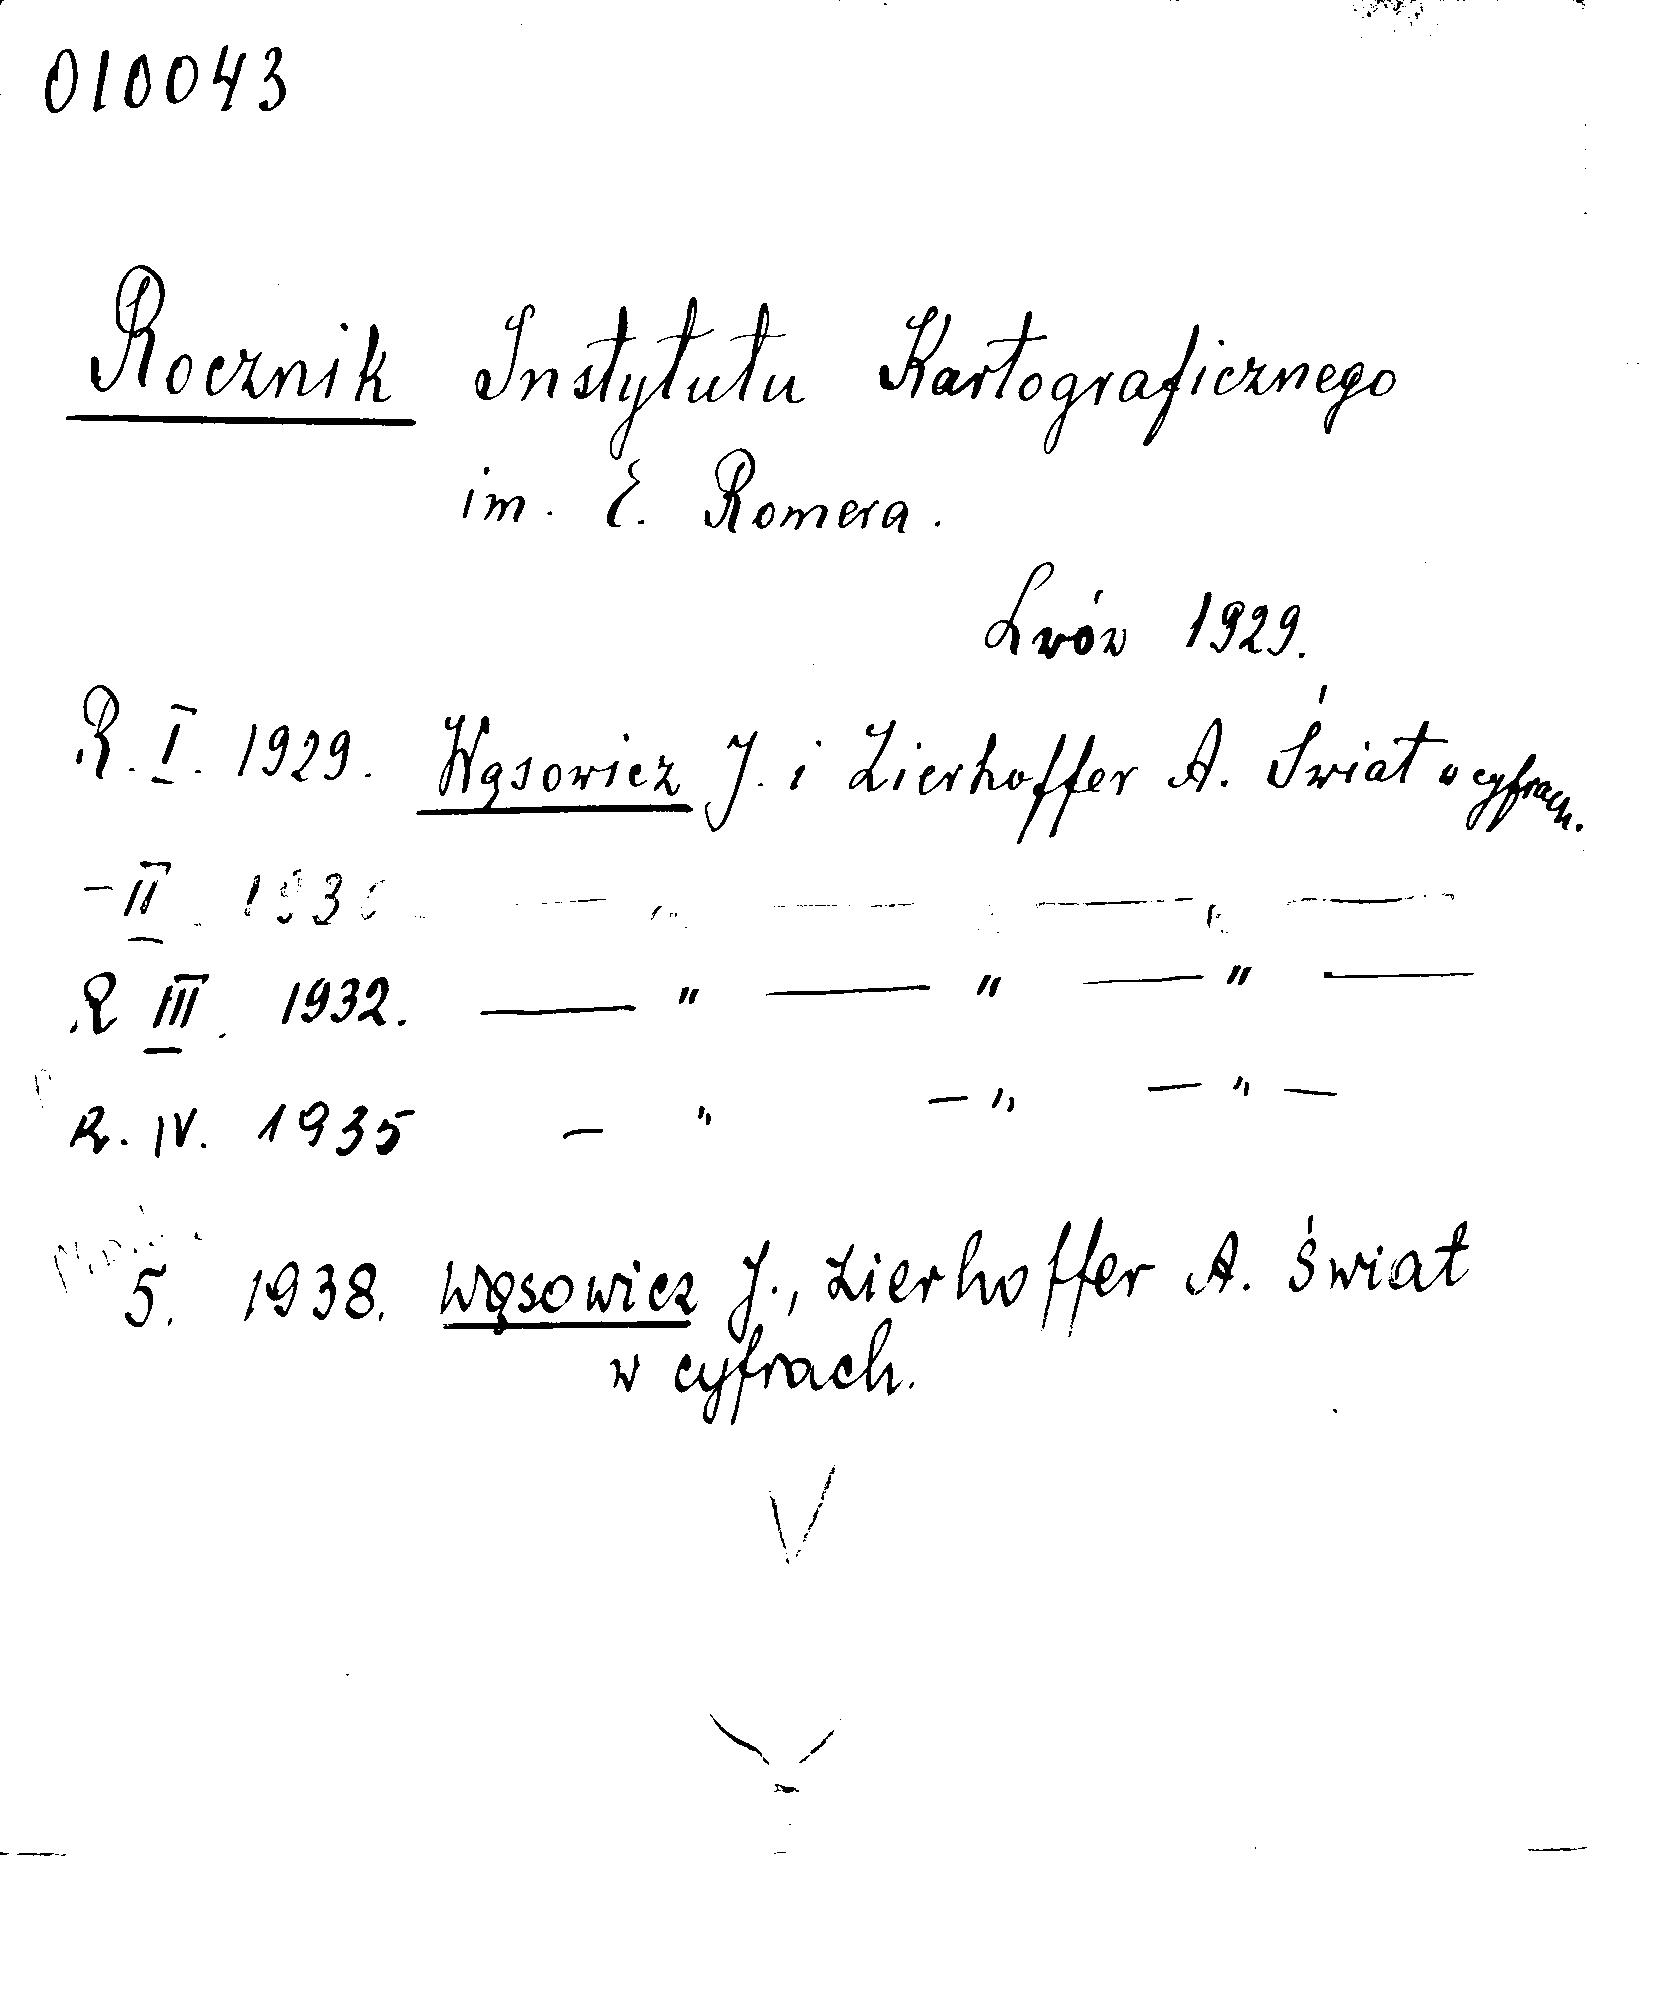 010043
Rocznik Instytutu Kartograficznego
im. E. Romera.
Lwów 1929.
R. I. 1929. Wąsowicz J. i Zierhoffer A. Świat w cyfrach.
- II. 1930 — " — — " —
R III. 1932. — " — " — " —
R. IV. 1935 - " - " - " -
5. 1938. Wąsowicz J., Zierhoffer A. Świat
w cyfrach.